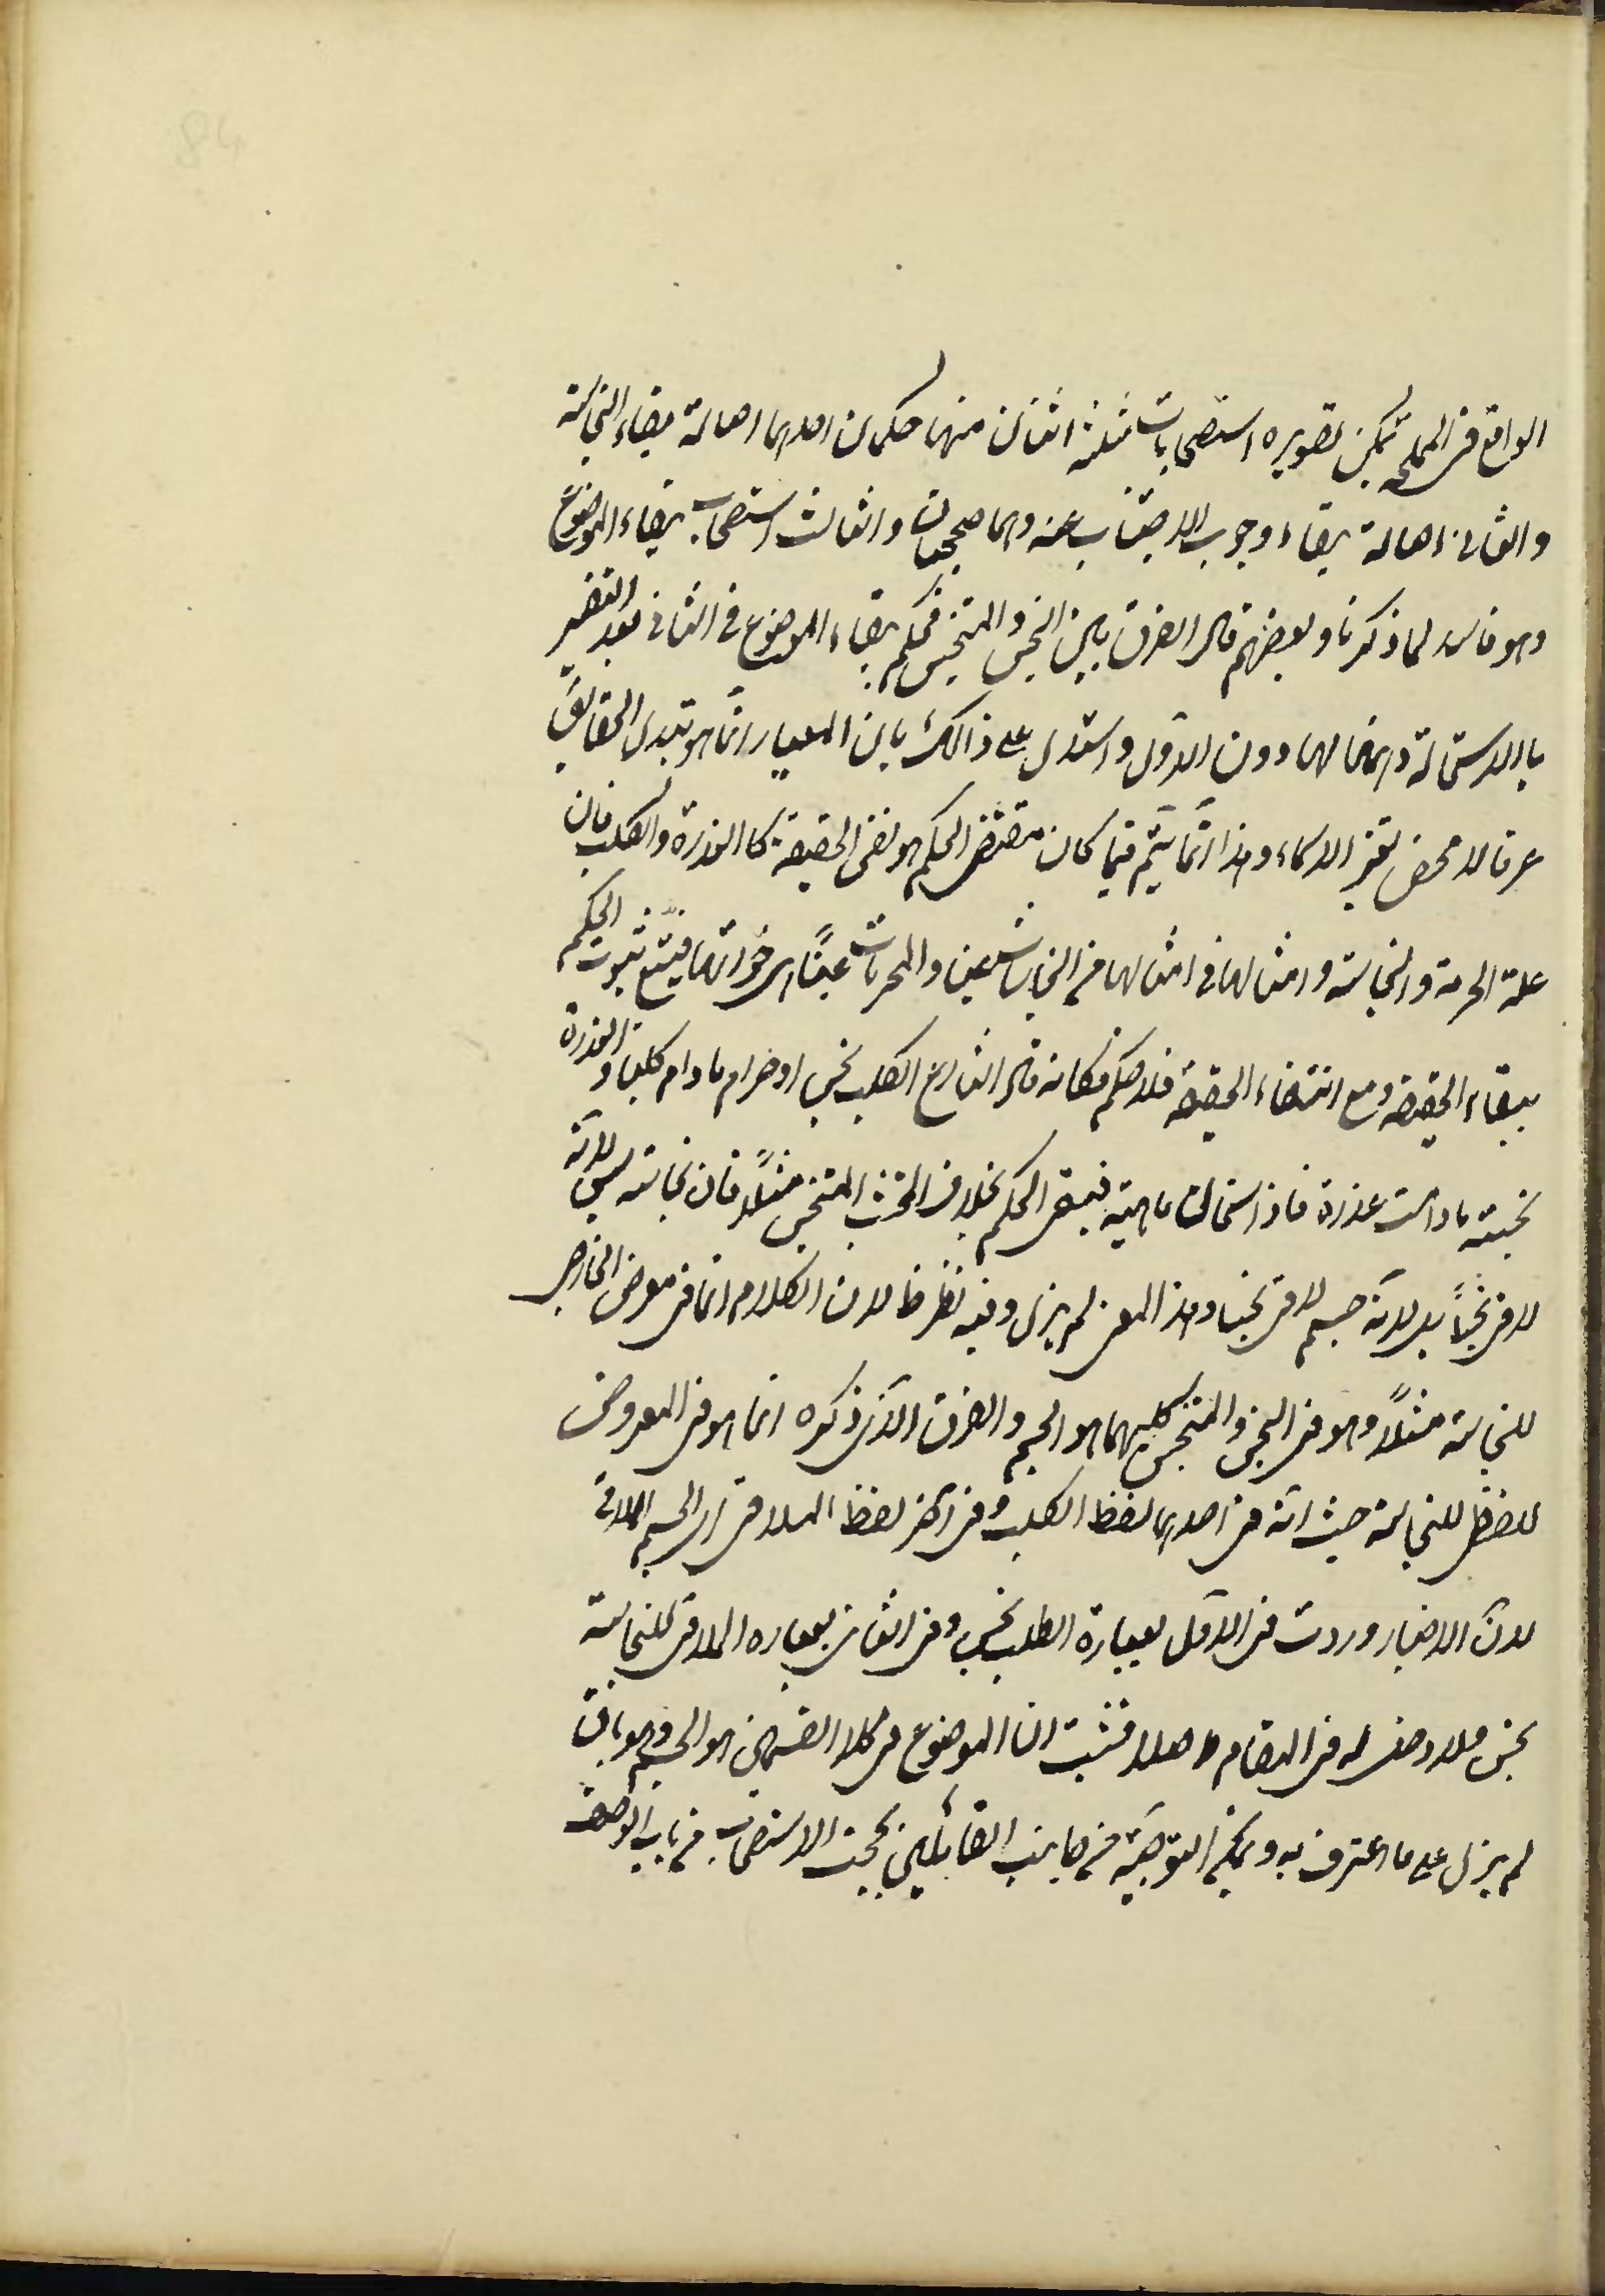 84
الواقع فی المملحه یمکن تصویره استصحابات ثلثه اثنان منها حکمان احدهما اصالة بقاء النجاسته
والثانی اصالة بقاء وجوب الاجتناب عنه وهما صحیحان والثالث استصحاب بقاء الموضوع
وهو فاسد لما ذکرنا وبعضهم قال الفرق بین النجس والمتنجس فحکم ببقاء الموضوع فی الثانی بعد التغیر
بالاستحالة وامثالها دون الاول واستدل علی ذالک بان المعیار انما هو تبدل الحقایق
عرفا لا محض تغیر الاسماء وهذا انما یتم فیما کان مقتضی الحکم هو نفس الحقیقة کالعذرة والکلب فان
علة الحرمة والنجاسته وامثالها فی امثالها من النجاسات عینا والمحرمات عیناً هی ذواتها فیتبع ثبوت الحکم
ببقاء الحقیقه ومع انتفاء الحقیقه فلا حکم فکانه قال الشارع الکلب نجس او حرام مادام کلبا والعذرة
نجسته مادامت عذرة فاذا استحالت ماهیته فینتفی الحکم بخلاف الخشب المتنجس مثلاً فان نجاسته لیس لانه
لاقی نجساً بل لانه جسم لاقی نجسا وهذا المعنی لم یزل وفیه نظر ظ لان الکلام انما فی معروض الخارجی
للنجاسة مثلاً وهو فی النجس والمتنجس کلیهما هو الجسم والفرق الذی ذکره انما هو فی المعروض
اللفظی للنجاسة حیث انه فی احدهما لفظ الکلب وفی آخر لفظ الملاقی ای الجسم الملاقی
لان الاخبار وردت فی الاول بعبارة الکلب نجس وفی الثانی بعباره الملاقی للنجاسته
نجس فلا دخل له فی المقام اصلا فثبت ان الموضوع فی کلا القسمین هو الجسم وهو باق
لم یزل علی ما اعترف به ویمکن التوجیه من جانب القائلین بحجیة الاستصحاب من باب الوصف